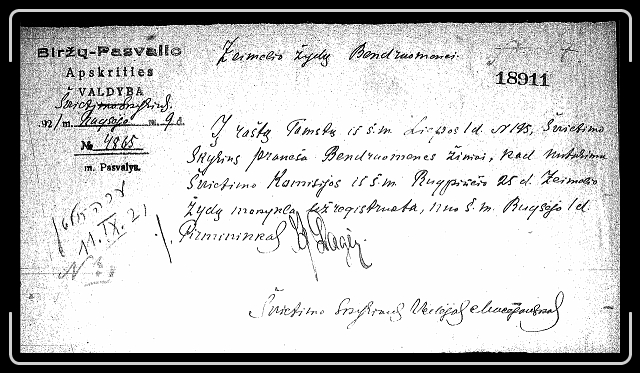 Biržų-Pasvalio
Apskrities
VALDYBA
Švietimo Skyrius.
192 1/m. Rugsėjo m. 9 d.
№ 4865
m. Pasvalys.
Žeimelio Žydų Bendruomenei.
18911
Į raštą Tamstų iš š.m. Liepos 1 d. N 195, Švietimo
Skyrius praneša Bendruomenės žiniai, kad nutarimu
Švietimo Komisijos iš š.m. Rugpiučio 25 d. Žeimelio
Žydų mokykla užregistruota, nuo š.m. Rugsėjo 1 d.
Pirmininkas
11.IX.21
N
Švietimo Skyriaus Vedėjas